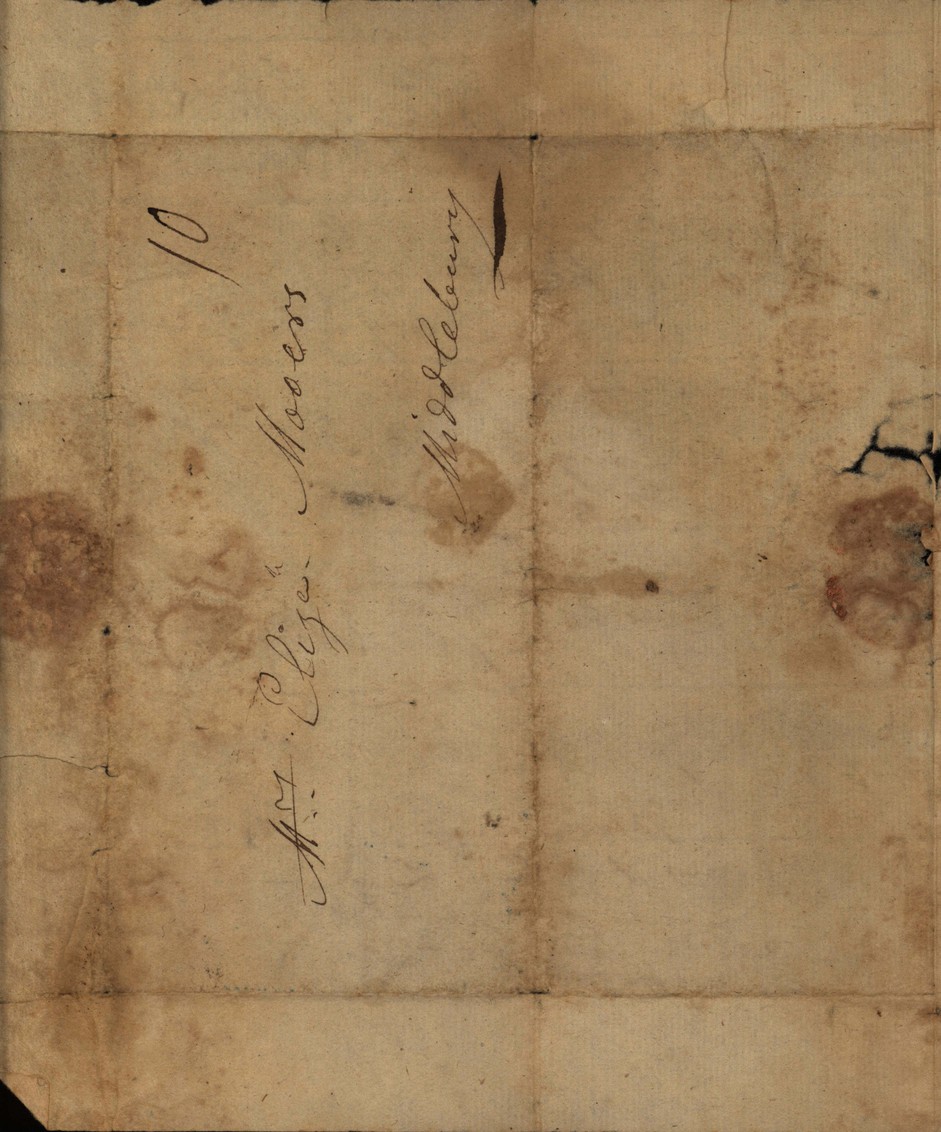 10
Mrs. Elizaʰ Mooers
Middlebury